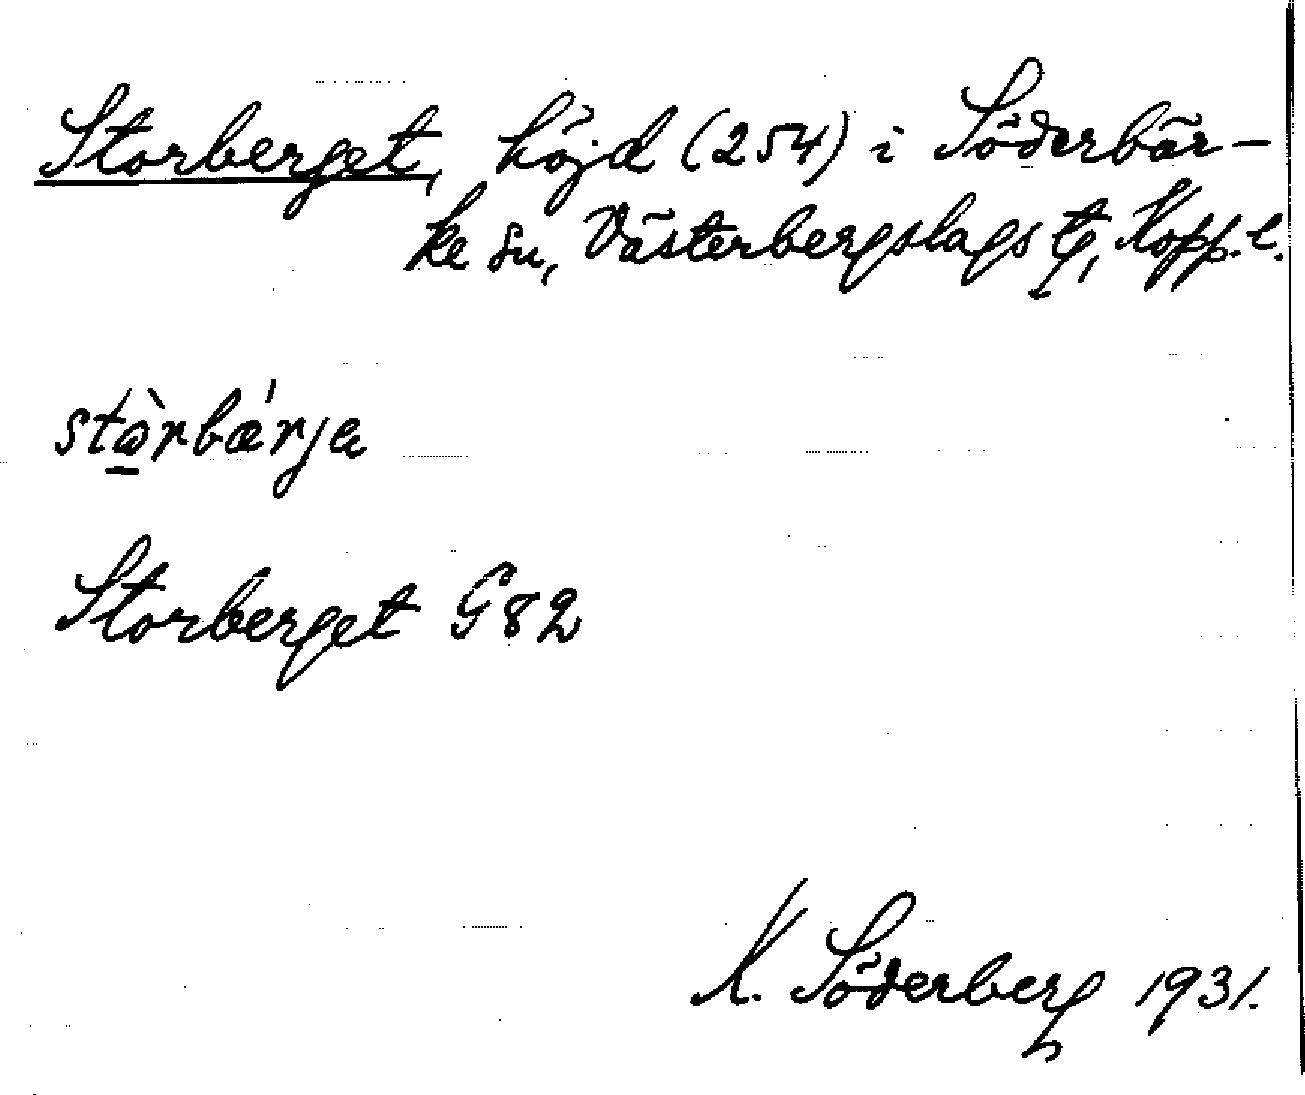 Storberget, höjd (254) i Söderbär-
ke sn, Västerbergslags tg, Kopp. l.
stòrbǽrja
Storberget G82
K. Söderberg 1931.